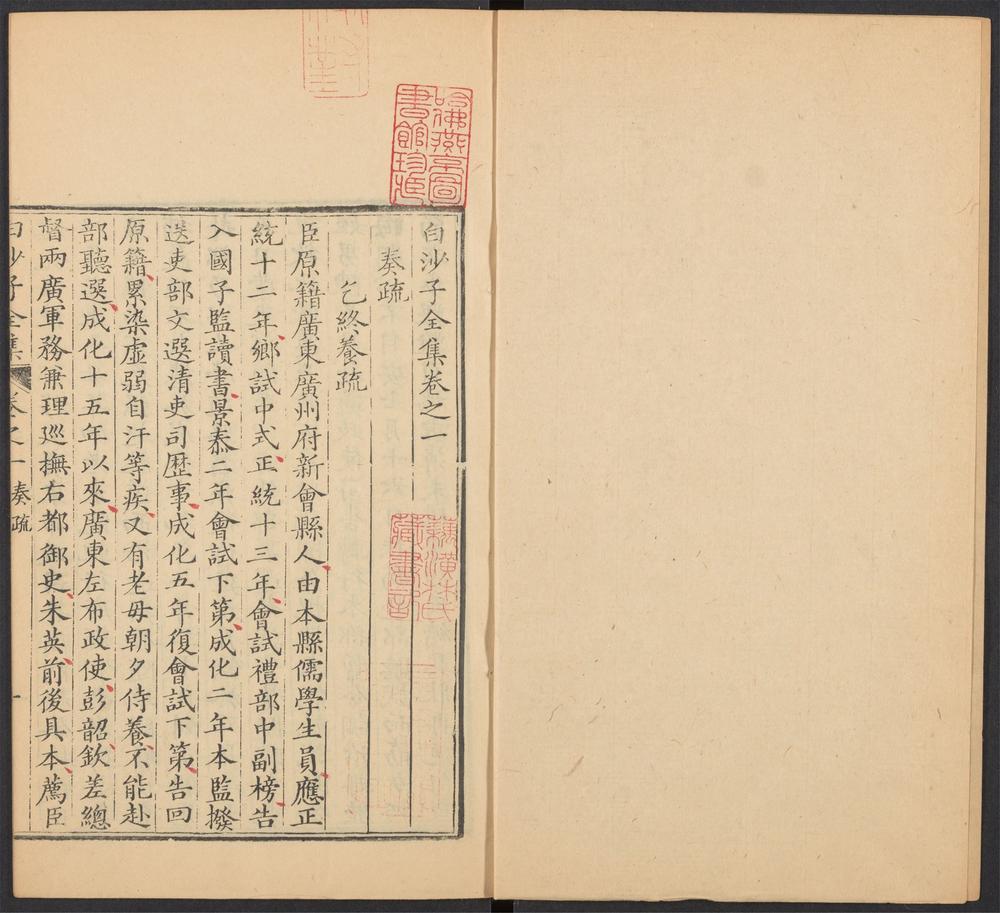 白沙子全集卷之一
奏疏
乞終養疏
臣原籍廣東廣州府新會縣人由本縣儒學生員應正
統十二年鄉試中式正統十三年會試禮部中副榜告
入國子監讀書景泰二年會試下第成化二年本監撥
送吏部文選清吏司歷事成化五年復會試下第告回
原籍累染虛弱自汗等疾又有老母朝夕侍養不能赴
部聽選成化十五年以來廣東左布政使彭韶欽差總
督兩廣軍務兼理巡撫右都御史朱英前後具本薦臣
白沙子全集 卷之一 奏疏 一
哈佛燕京圖
書館珍藏
藏書記